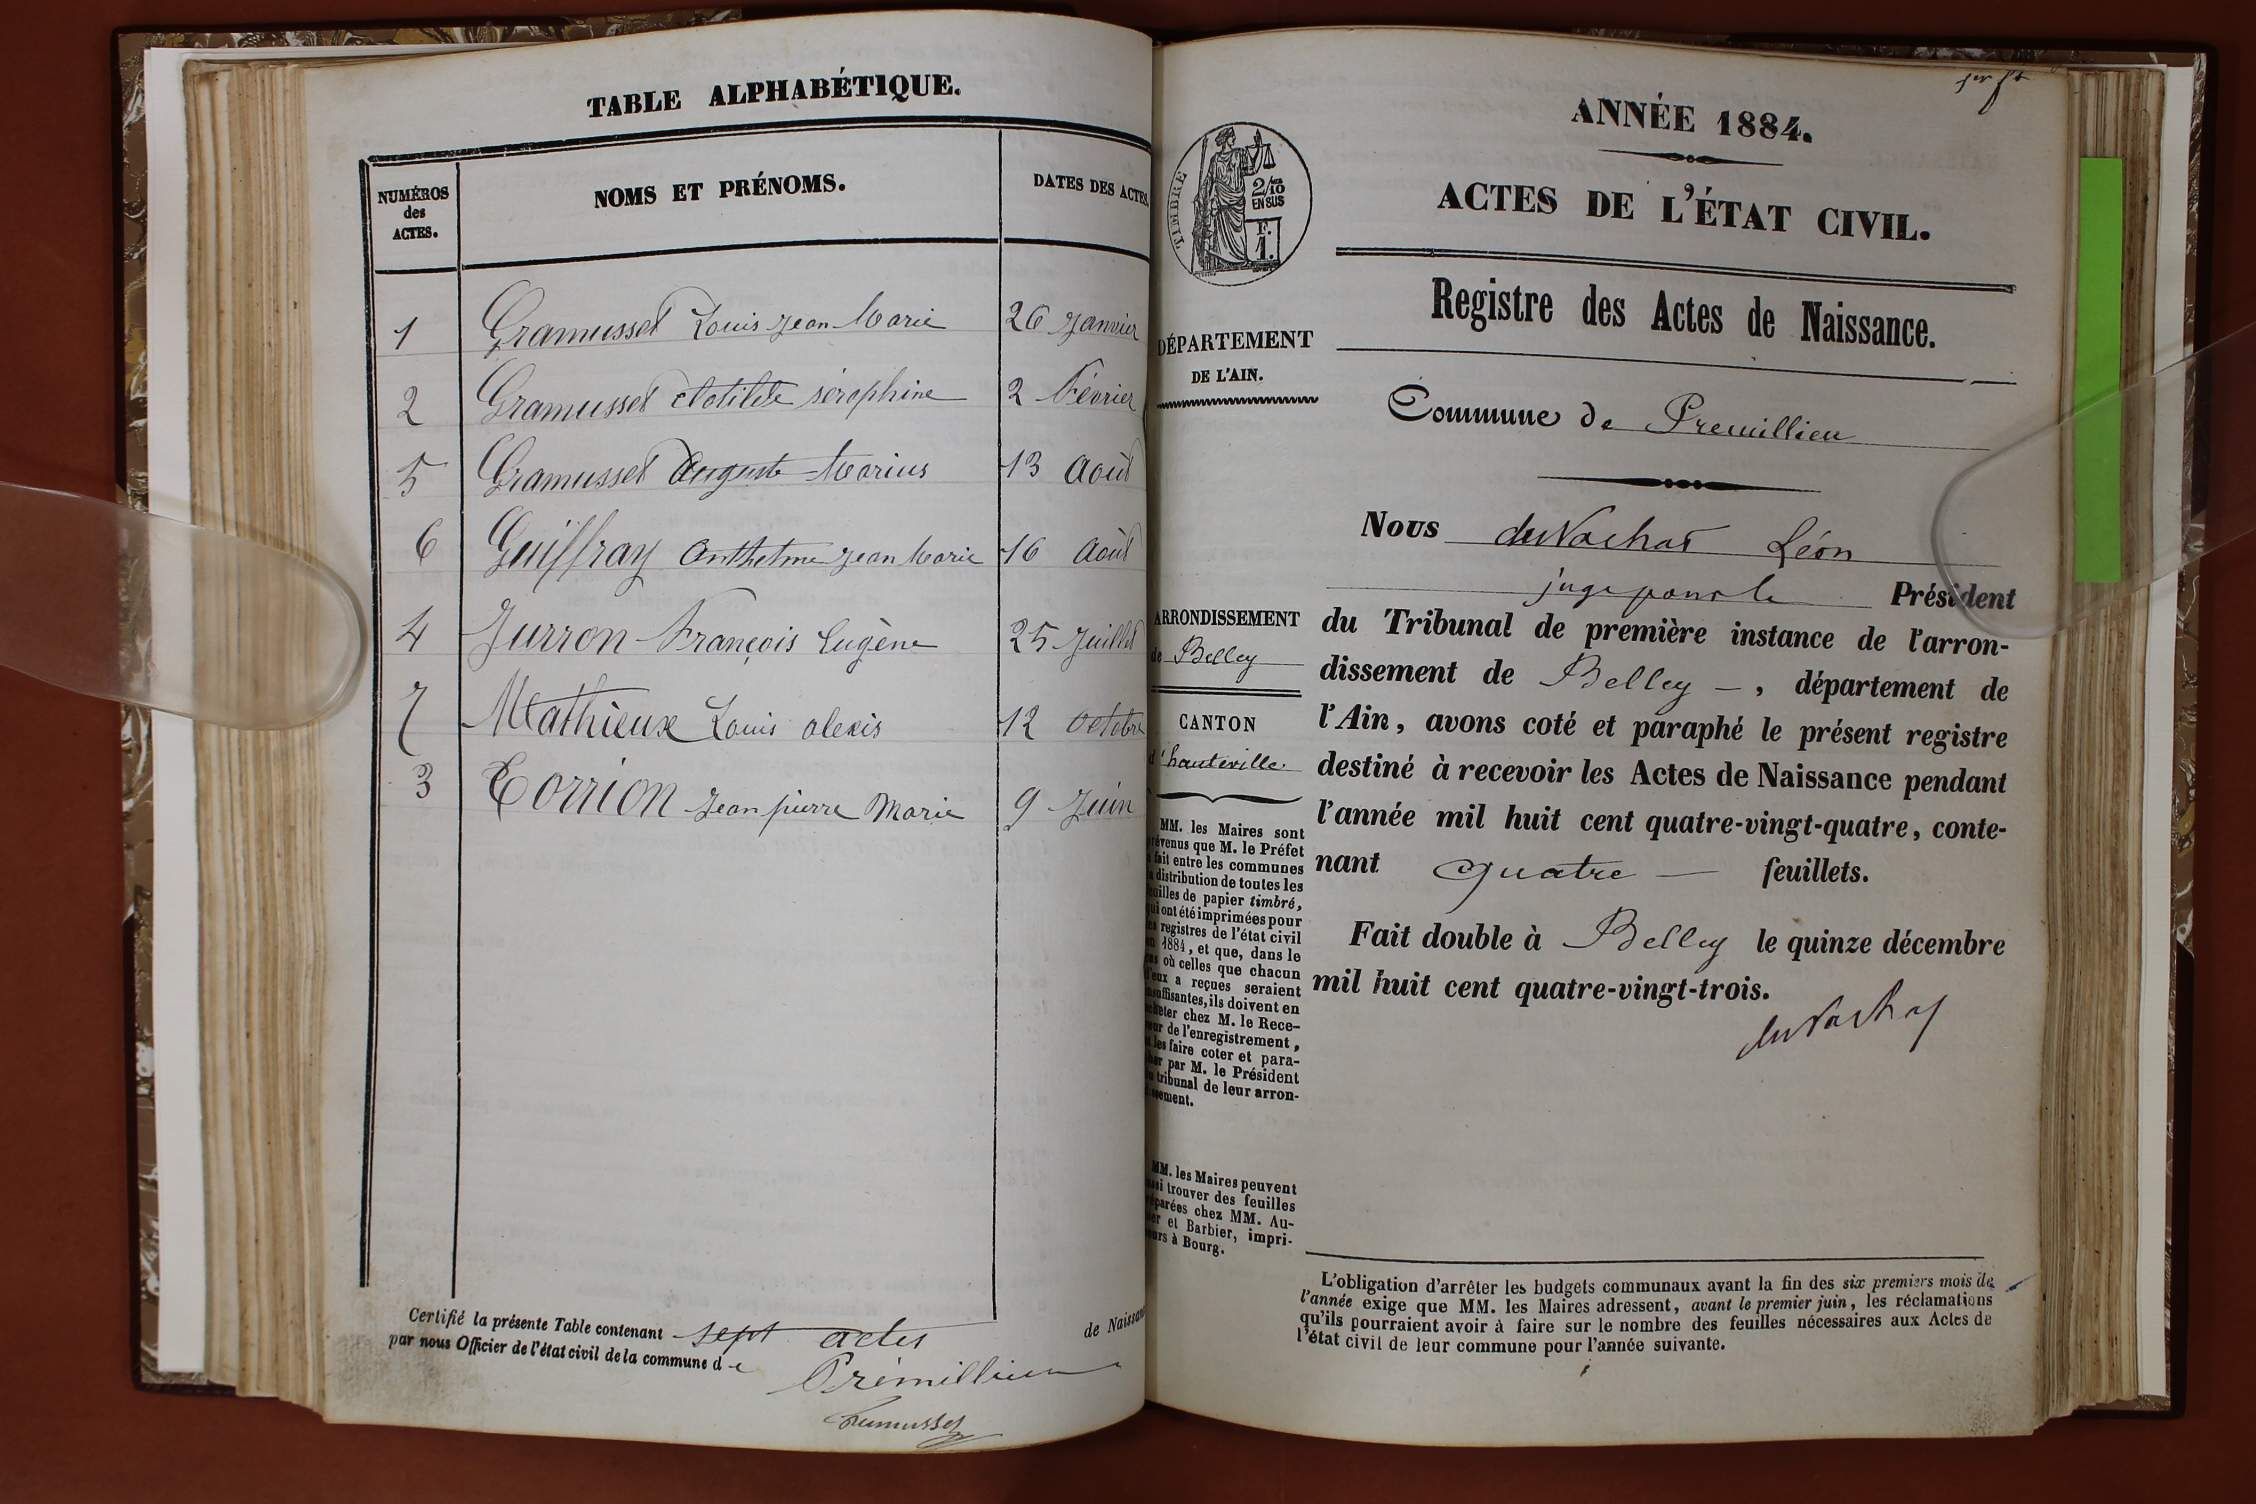 TABLE ALPHABÉTIQUE.
NUMÉROS
des
ACTES.
NOMS ET PRÉNOMS.
DATES DES ACTES.
1 Gramusset Louis Jean Marie 26 Janvier
2 Gramusset Clotilde séraphine 2 Février
5 Gramusset Auguste Marius 13 Août
6 Guiffray Anthelme Jean Marie 16 Août
4 Jurron François Eugène 25 Juillet
7 Mathieux Louis alexis 12 octobre
3 Corrion Jean pierre Marie 9 Juin
Certifié la présente Table contenant sept actes de Naissan
par nous Officier de l'état civil de la commune de Prémillieu
Gramusset
1er ft
ANNÉE 1884.
ACTES DE L'ÉTAT CIVIL.
TIMBRE
2/10
EN SUS
F.
1.
Registre des Actes de Naissance.
DÉPARTEMENT
DE L'AIN.
Commune de Premillieu
Nous duVachat Léon
juge pour le Président
ARRONDISSEMENT
de Belley
CANTON
d'hauteville.
du Tribunal de première instance de l'arron-
dissement de Belley —, département de
l'Ain, avons coté et paraphé le présent registre
destiné à recevoir les Actes de Naissance pendant
l'année mil huit cent quatre-vingt-quatre, conte-
nant quatre — feuillets.
Fait double à Belley le quinze décembre
mil huit cent quatre-vingt-trois.
duVachat
MM. les Maires sont
révenus que M. le Préfet
fait entre les communes
distribution de toutes les
euilles de papier timbré,
qui ont été imprimées pour
es registres de l'état civil
en 1884, et que, dans le
cas où celles que chacun
d'eux a reçues seraient
nsuffisantes, ils doivent en
cheter chez M. le Rece-
eur de l'enregistrement,
les faire coter et para-
her par M. le Président
u tribunal de leur arron-
issement.
MM. les Maires peuvent
ussi trouver des feuilles
éparées chez MM. Au-
er et Barbier, impri-
eurs à Bourg.
L'obligation d'arrêter les budgets communaux avant la fin des six premiers mois de
l'année exige que MM. les Maires adressent, avant le premier juin, les réclamations
qu'ils pourraient avoir à faire sur le nombre des feuilles nécessaires aux Actes de
l'état civil de leur commune pour l'année suivante.